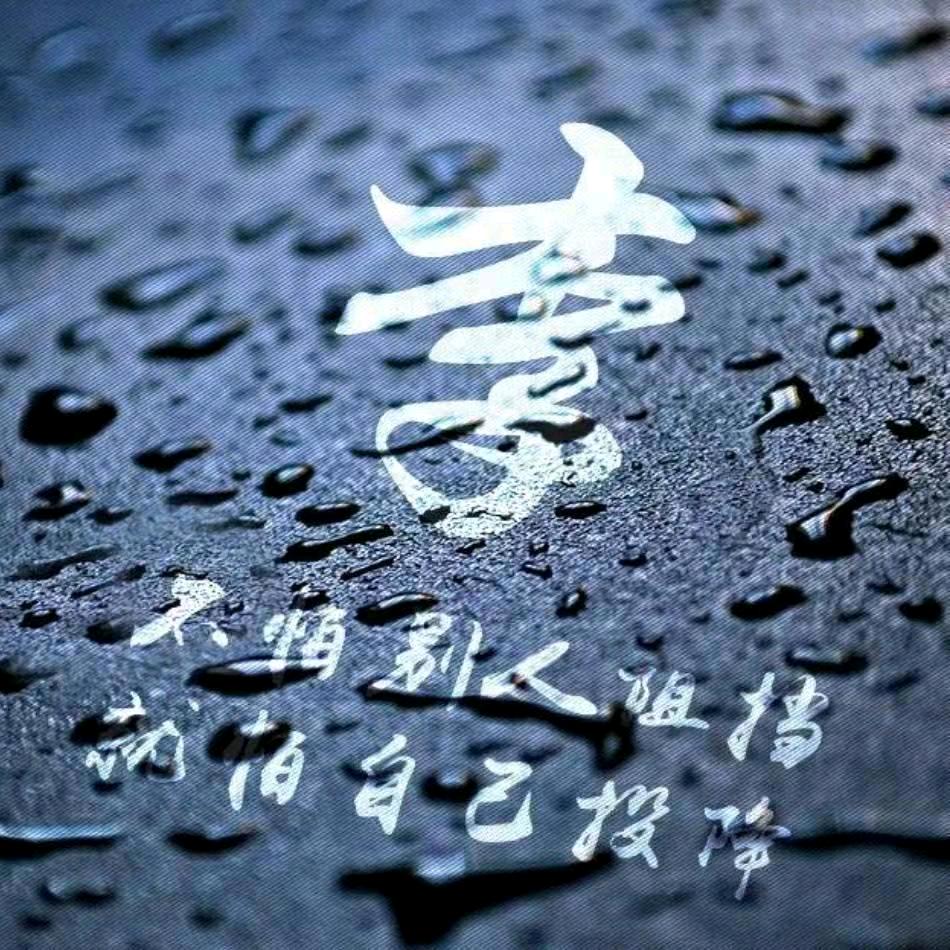 不怕别人阻挡
就怕自己投降